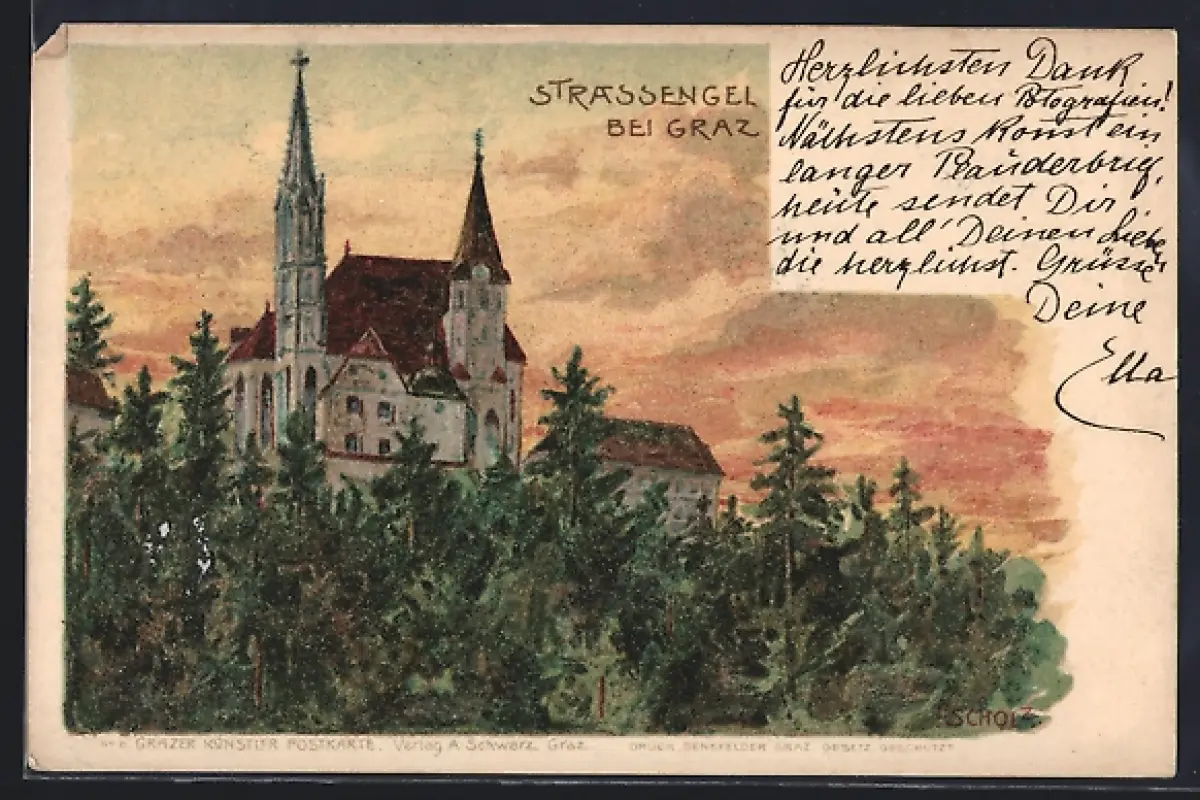 STRASSENGEL
BEI GRAZ
Herzlichsten Dank
für die lieben Potografien!
Nächstens komt ein
langer Plauderbrief,
heute sendet Dir
und all' Deinen Lieben
die herzlichst. Grüsse
Deine
Ella
SCHOLZ
No 8. GRAZER KÜNSTLER POSTKARTE. Verlag A. Schwarz, Graz.
DRUCK SENEFELDER GRAZ GESETZ. GESCHÜTZT